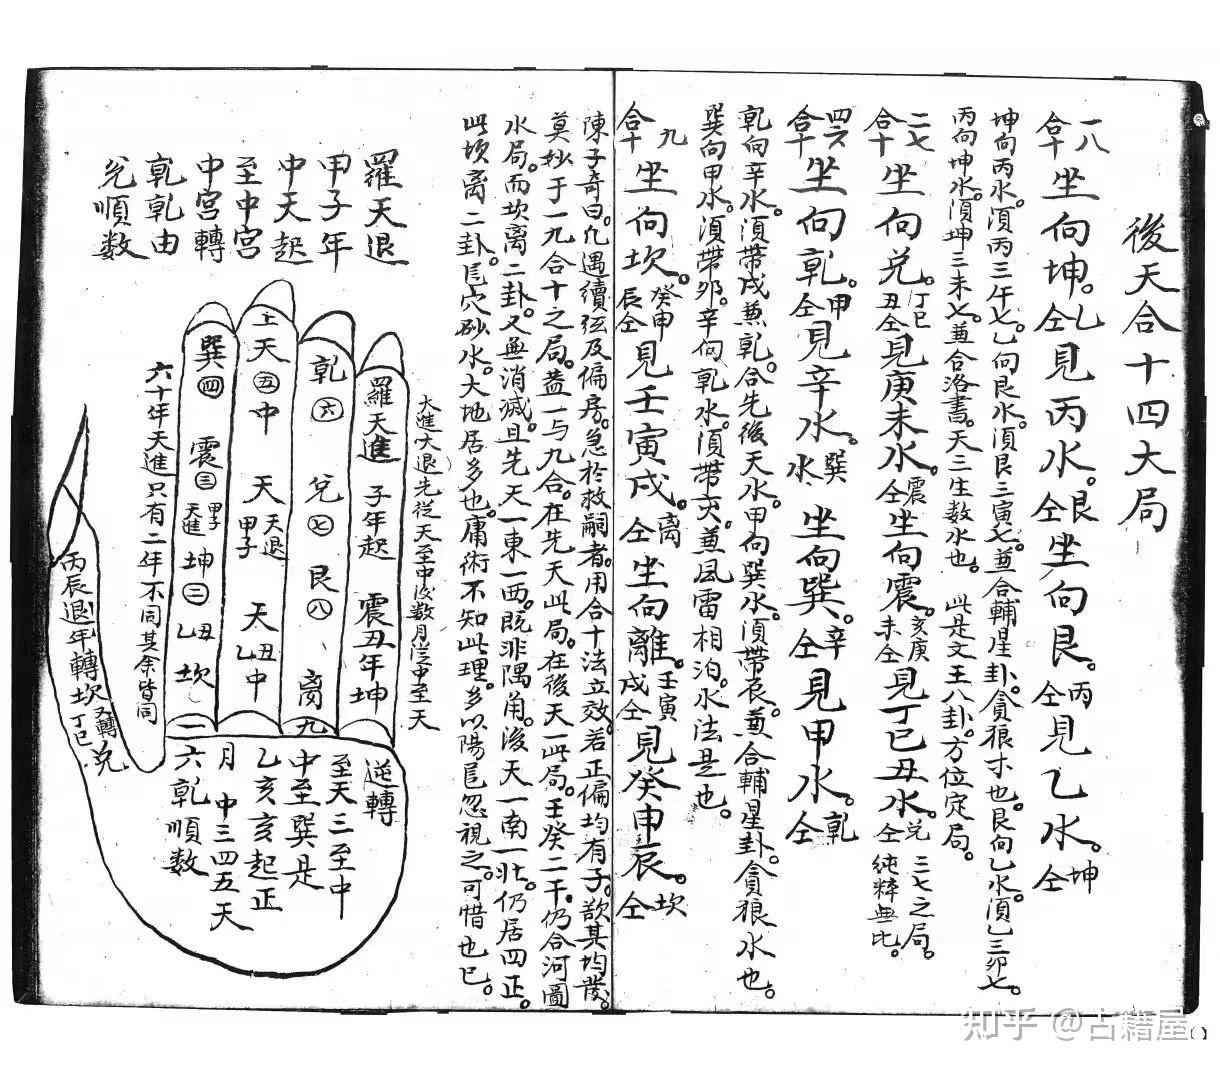 後天合十四大局
一八合十坐向坤。乙仝見丙水。艮仝坐向艮。丙仝見乙水。坤仝
坤向丙水。須丙三午七。乙向艮水。須艮三寅七。兼合輔星卦。貪狼木也。艮向乙水。須乙三卯七。
丙向坤水。須坤三未七。兼合洛書。天三生數水也。此是文王八卦。方位定局。
二七合十坐向兌。丁巳丑仝見庚未水。震仝坐向震。亥庚未仝見丁巳丑水。兌仝三七之局。純粹無比。
四六合十坐向乾。甲仝見辛水。巽水坐向巽。辛仝見甲水。乾仝
乾向辛水。須帶戌兼乾。合先後天水。甲向巽水。須帶辰。兼合輔星卦。貪狼水也。
巽向甲水。須帶卯。辛向乾水。須帶亥。兼風雷相泊。水法是也。
九合十坐向坎。癸申辰仝見壬寅戌。離仝坐向離。壬寅戌仝見癸申辰。坎仝
陳子奇曰。凡遇續弦及偏房。急於救嗣者。用合十法立效。若正偏均有子。欲其均發。
莫妙于一九合十之局。蓋一与九合。在先天此局。在後天一此局。壬癸二干。仍合河圖
水局。而坎离二卦。又無消減。且先天一東一西。既非隅角。後天一南一北。仍居四正。
此坎离二卦。龍穴砂水。大地居多也。庸術不知此理。多以陽龍忽視之。可惜也已。
羅天退
甲子年
中天起
至中宮
中宮轉
乾乾由
兌順数
大進大退先從天至中後数月從中至天
羅天進 子年起 震丑年坤
乾 六 兌 七 艮 八 离 九
上天 五 中 天 天退甲子 天 丑乙中
巽 四 震 三 甲子天進 坤 二 丑乙 坎 一
六十年天進只有二年不同其余皆同
丙辰退年轉坎又轉丁巳兌
逆轉
至天三至中
中至巽是
乙亥亥起正
月中三四五天
六乾順数
知乎 @古籍屋